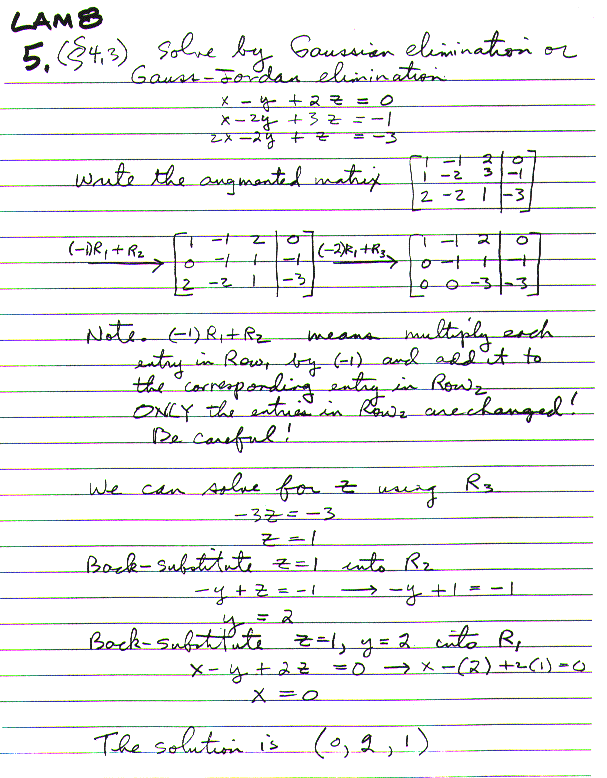 LAMB
5. (§4.3) Solve by Gaussian elimination or
Gauss-Jordan elimination
x - y + 2z = 0
x - 2y + 3z = -1
2x - 2y + z = -3
Write the augmented matrix [1 -1 2 | 0
1 -2 3 | -1
2 -2 1 | -3]
(-1)R₁ + R₂ → [1 -1 2 | 0
0 -1 1 | -1
2 -2 1 | -3]
(-2)R₁ + R₃ → [1 -1 2 | 0
0 -1 1 | -1
0 0 -3 | -3]
Note. (-1) R₁ + R₂ means multiply each
entry in Row₁ by (-1) and add it to
the corresponding entry in Row₂
ONLY the entries in Row₂ are changed!
Be careful!
We can solve for z using R₃
-3z = -3
z = 1
Back-substitute z = 1 into R₂
-y + z = -1 → -y + 1 = -1
y = 2
Back-substitute z = 1, y = 2 into R₁
x - y + 2z = 0 → x - (2) + 2(1) = 0
x = 0
The solution is (0, 2, 1)